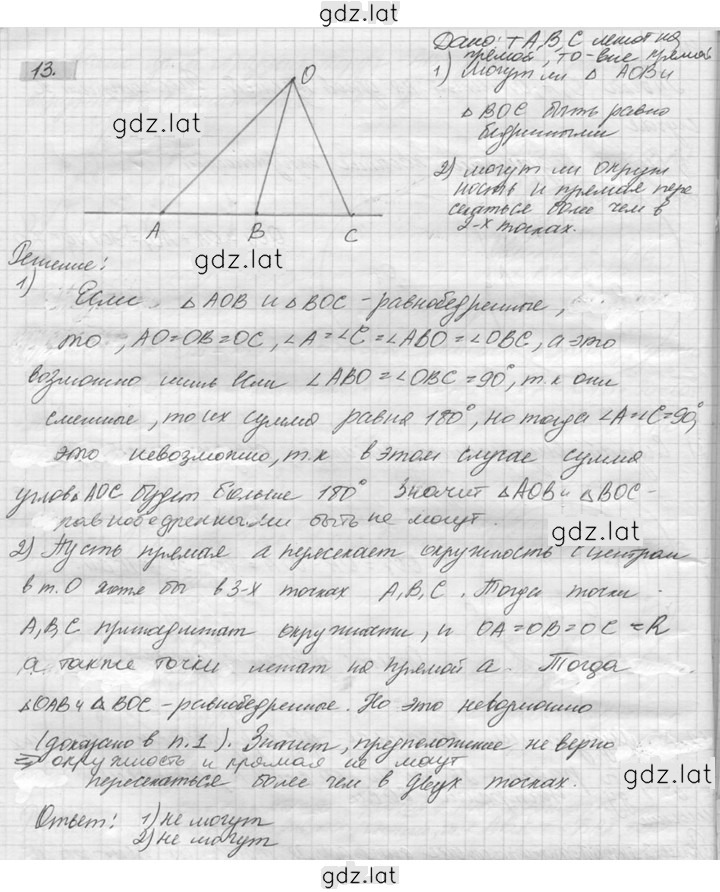 gdz.lat
13.
Дано: т A, B, C лежат на
прямой, т O - вне прямой
1) Могут ли △ AOB и
△ BOC быть равно
бедренными
2) могут ли окруж
ность и прямая пере
секаться более чем в
2-х точках.
O
gdz.lat
A B C
gdz.lat
Решение:
1)
Если △ AOB и △ BOC - равнобедренные,
то, AO = OB = OC, ∠A = ∠C = ∠ABO = ∠OBC, а это
возможно лишь если ∠ABO = ∠OBC = 90°, т.к они
смежные, то их сумма равна 180°, но тогда ∠A = ∠C = 90°,
это невозможно, т.к в этом случае сумма
углов △ AOC будет больше 180° Значит △ AOB и △ BOC -
равнобедренными быть не могут.
gdz.lat
2) Пусть прямая a пересекает окружность с центром
в т. O хотя бы в 3-х точках A, B, C. Тогда точки
A, B, C принадлежат окружности, и OA = OB = OC = R
а также точки лежат на прямой a. Тогда
△ OAB и △ BOC - равнобедренные. Но это невозможно
(доказано в п. 1). Значит, предположение не верно
⇒ окружность и прямая не могут
пересекаться более чем в двух точках.
gdz.lat
Ответ: 1) не могут
2) не могут
gdz.lat